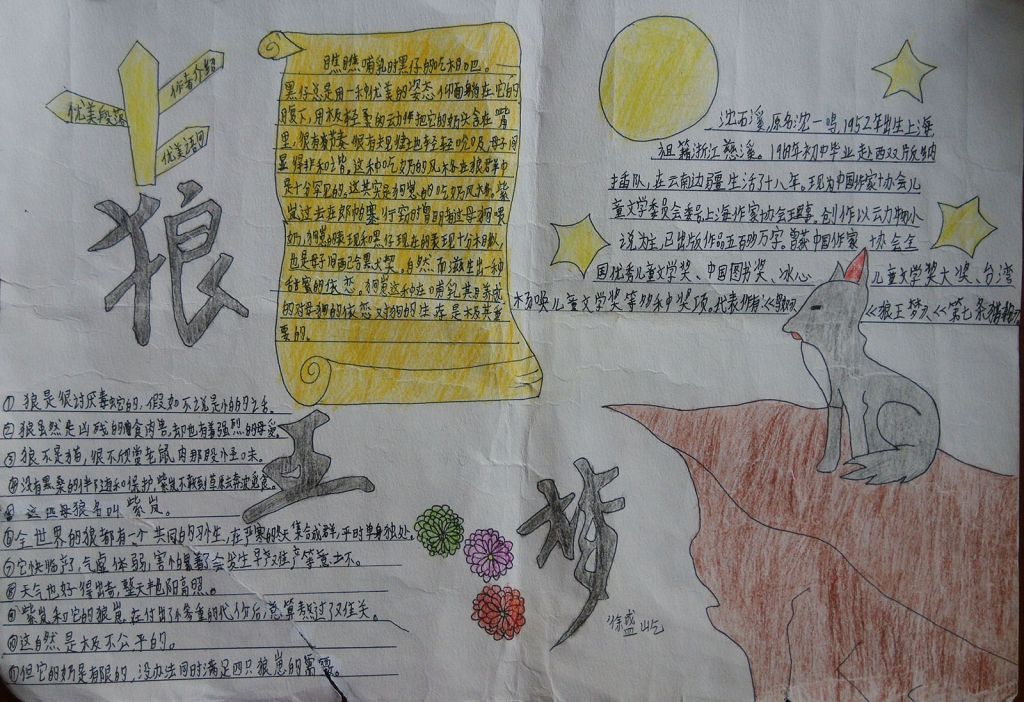 狼
王
梦
作者介绍
优美段落
优美语句
瞧瞧哺乳时黑仔的吃相吧。
黑仔总是用一种优美的姿态仰面躺在它的
腹下,用极轻柔的动作把它的奶头含在嘴
里,很有节奏
显得非和谐。这种吃奶的风格在狼群中
是十分罕见的。这其实是狗崽的吃奶风格。紫
岚过去在郎帕寨
奶,狗崽的表现和黑仔现在的表现十分相似,
也是母子间配合默契。自然而滋生出一种
甜蜜的依恋。狗崽这种在哺乳其间养成
的对母狗的依恋对狗的生存是极其重
要的。
沈石溪,原名沈一鸣,1952年出生上海
祖籍浙江慈溪。1969年初中毕业赴西双版纳
插队,在云南边疆生活了十八年。现为中国作家协会儿
童文学委员会委员上海作家协会理事。创作以动物小
说为主,已出版作品五百多万字。曾获中国作家协会全
国优秀儿童文学奖、中国图书奖、冰心儿童文学奖大奖、台湾
杨唤儿童文学奖等多种奖项。代表作有《狼王梦》《第七条猎狗》
①狼是很讨厌毒蛇的,假如不说是怕的话。
②狼虽然是凶残的嗜食肉兽,却也有着强烈的母爱。
③狼不是猫,狼不欣赏老鼠肉那股小土味。
④没有黑桑的伴陪和保护紫岚不敢到草原去奔波觅食。
⑤这匹母狼名叫紫岚。
⑥全世界的狼都有一个共同的习性,在严寒的冬天集合成群,平时单身独处。
⑦它快临产了,气虚体弱,害怕
⑧天气也好得出奇,整天艳阳高照。
⑨紫岚和它的狼崽在付出了不多重的代价后,总算熬过了双佳关。
⑩这自然是极不公平的。
⑪但它的奶是有限的,没办法同时满足四只狼崽的需要。
徐盛屹